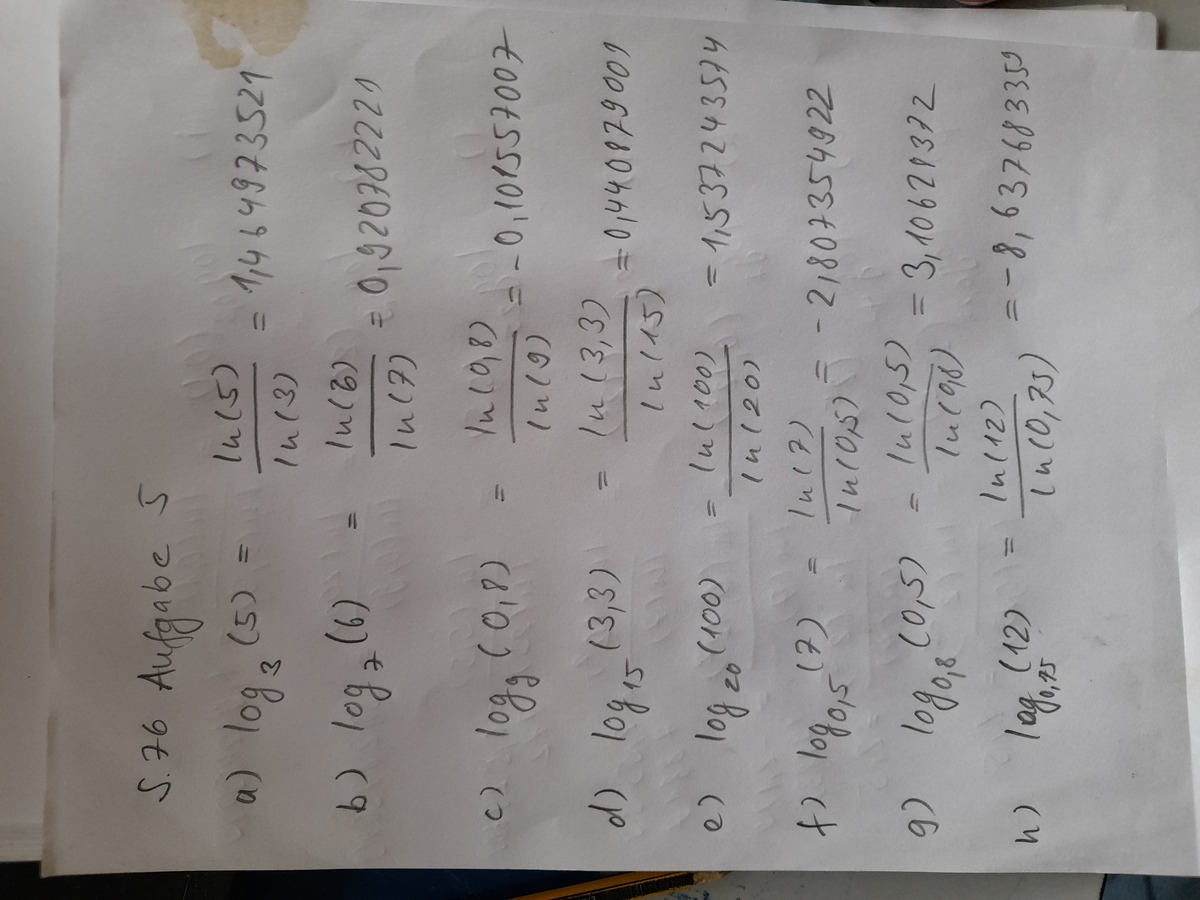 S.76 Aufgabe 5
a) log₃(5) = ln(5)/ln(3) = 1,464973521
b) log₇(6) = ln(6)/ln(7) = 0,920782221
c) log₉(0,8) = ln(0,8)/ln(9) = -0,101557007
d) log₁₅(3,3) = ln(3,3)/ln(15) = 0,440879001
e) log₂₀(100) = ln(100)/ln(20) = 1,537243574
f) log₀,₅(7) = ln(7)/ln(0,5) = -2,807354922
g) log₀,₈(0,5) = ln(0,5)/ln(0,8) = 3,10628372
h) log₀,₇₅(12) = ln(12)/ln(0,75) = -8,637683359